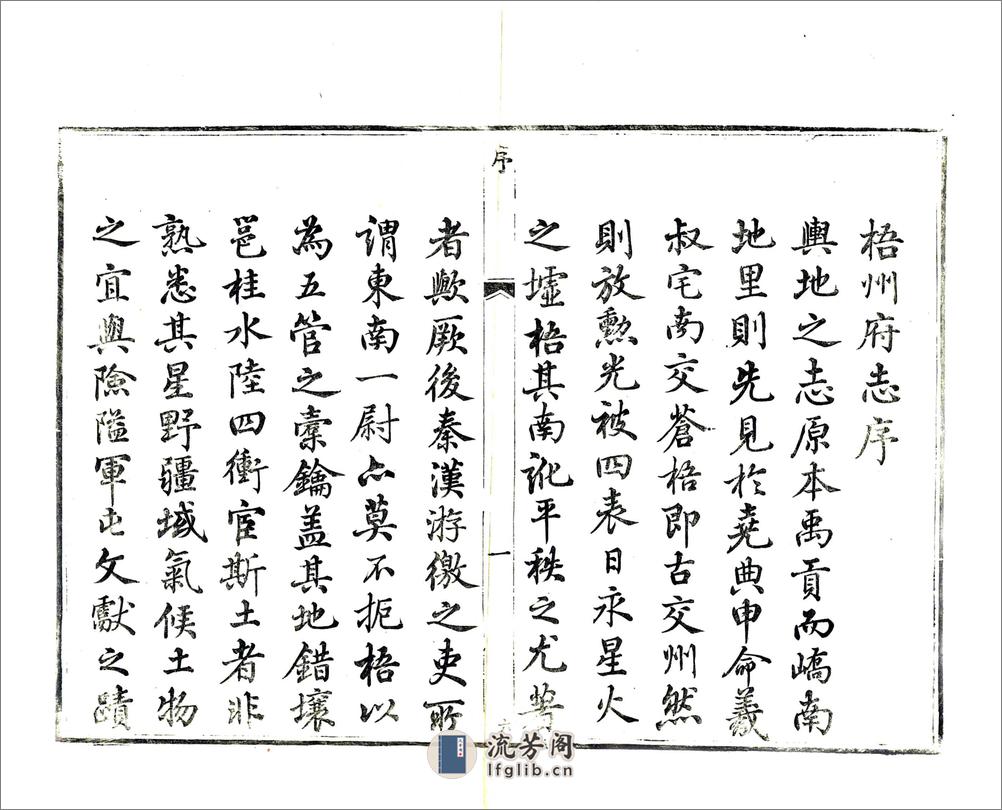 梧州府志序
輿地之志原本禹貢而嶠南
地里則先見於堯典申命羲
叔宅南交蒼梧即古交州然
則放勲光被四表日永星火
之墟梧其南訛平秩之尤著
序
一
者歟厥後秦漢游徼之吏所
謂東南一尉亦莫不扼梧以
為五管之橐鑰盖其地錯壤
邕桂水陸四衝宦斯土者非
熟悉其星野疆域氣候土物
之宜與險隘軍屯文獻之蹟
流芳阁
lfglib.cn